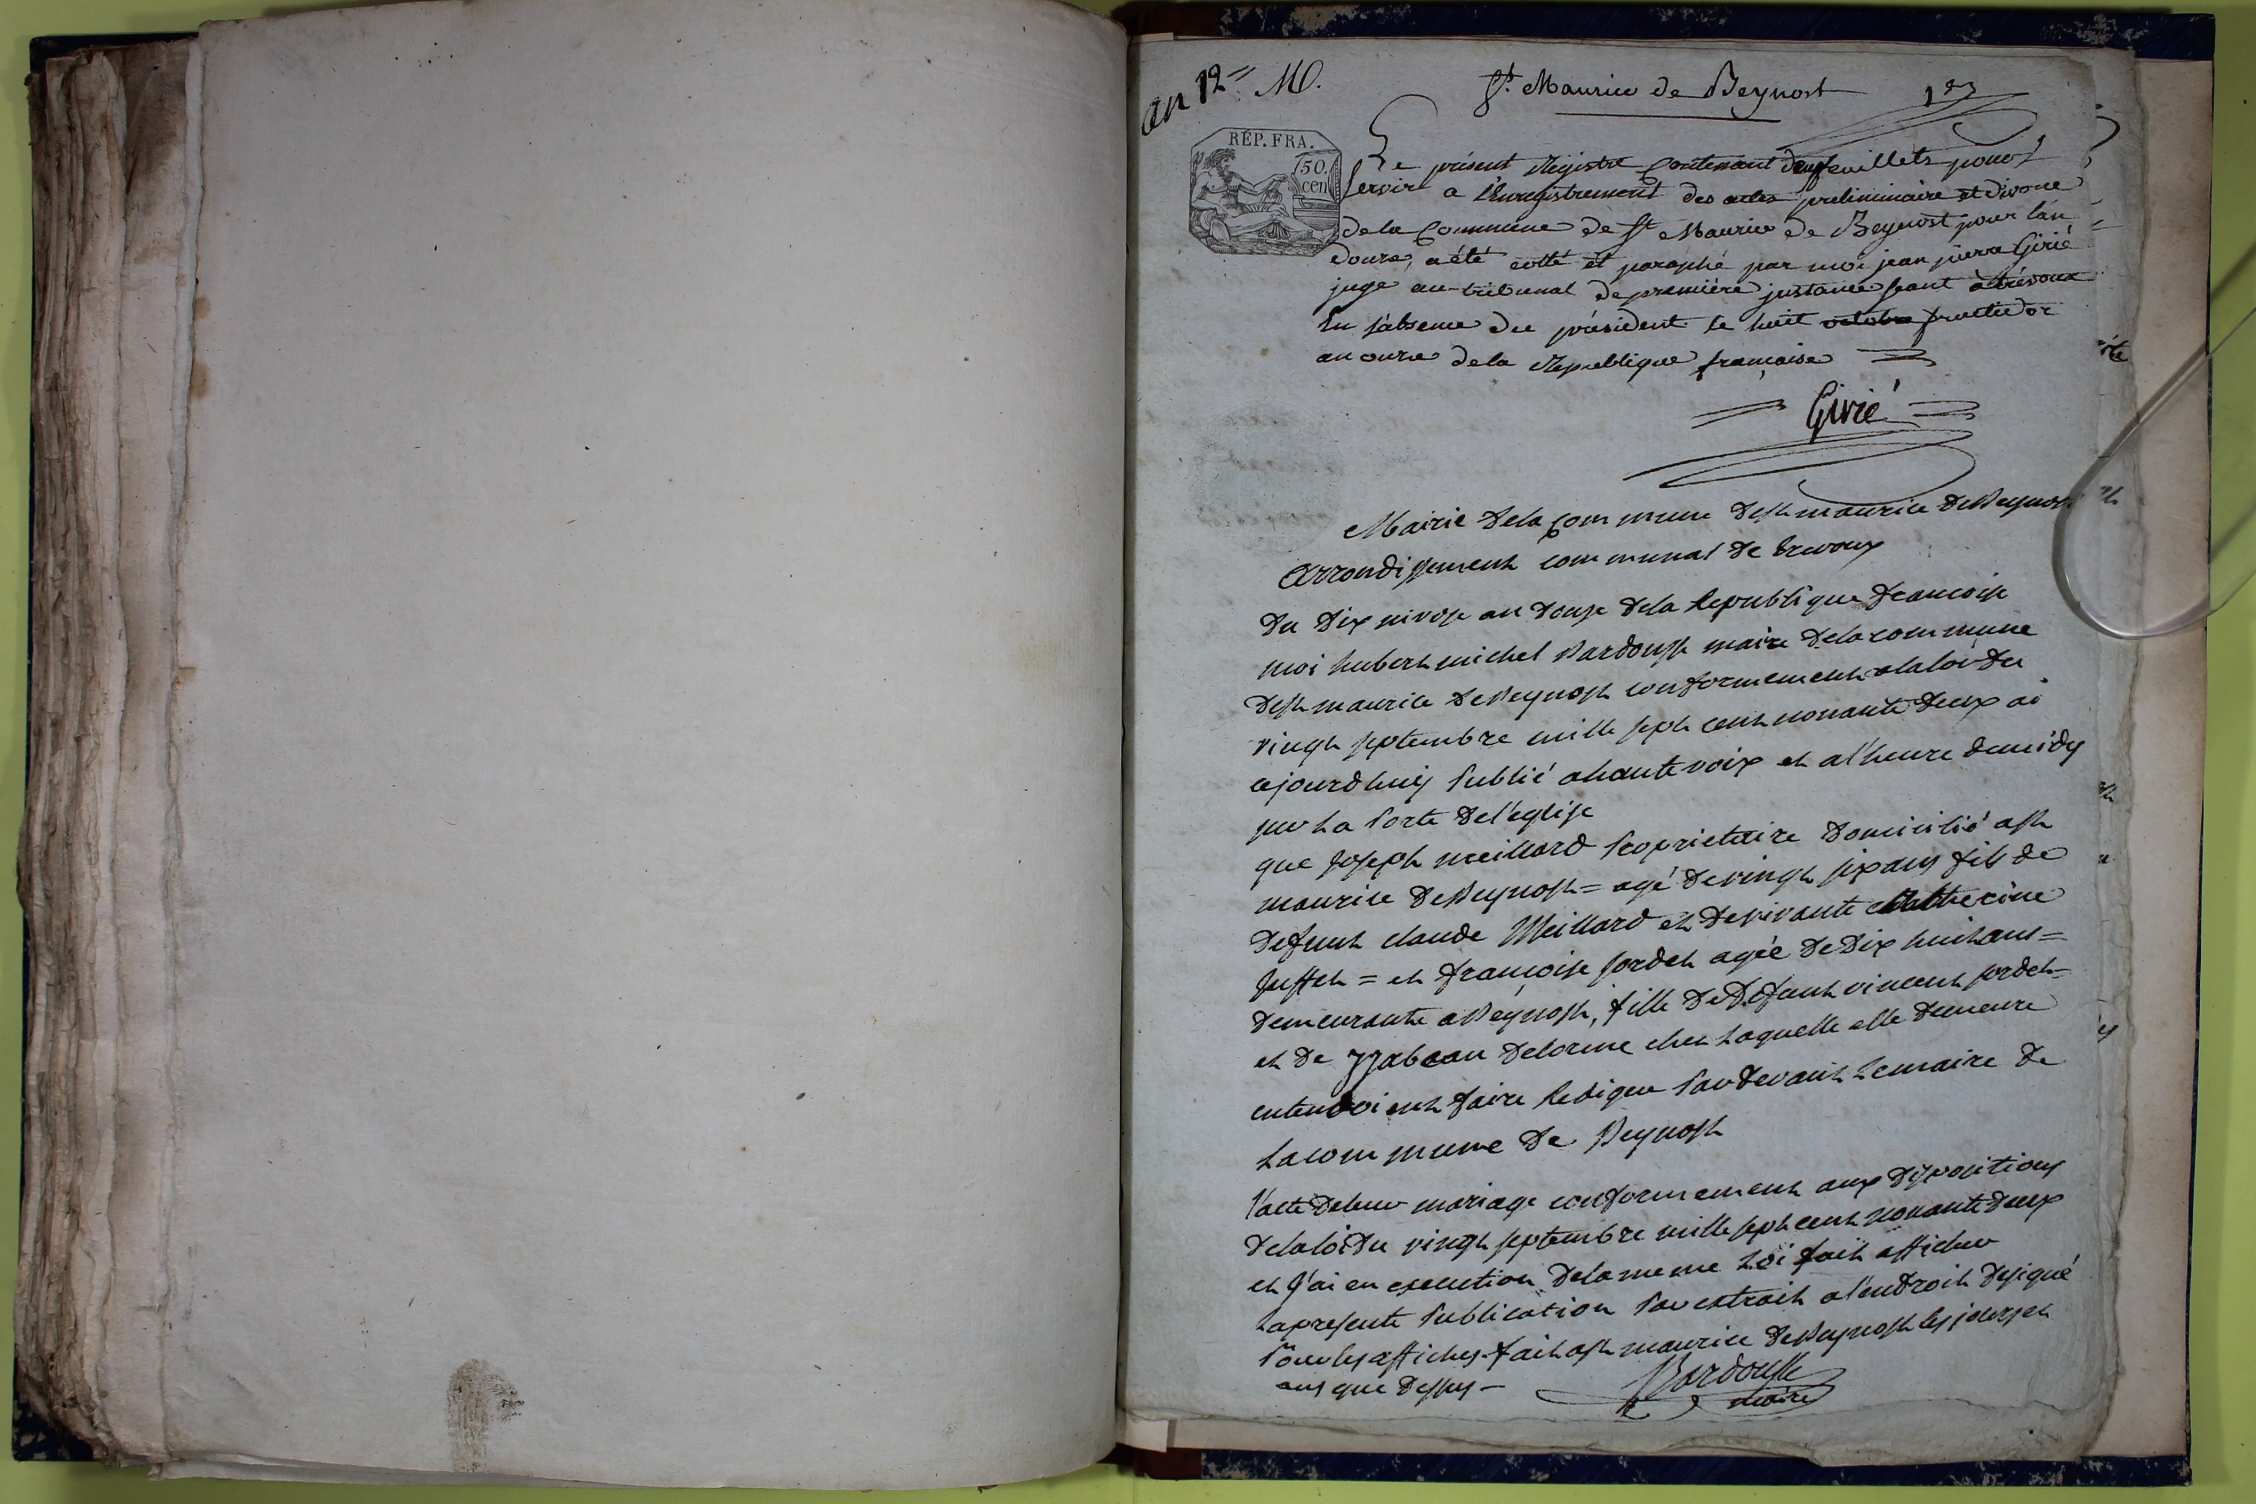 an 12= M.
St. Maurice de Beynost 1er
RÉP. FRA.
50.
cen
Le présent Régistre contenant deux feuillets pour
servir a l'Enregistrement des actes preliminaire et divorce
de la Commune de St Maurice de Beynost pour l'an
douze, a été cotté et paraphé par moi jean pierre Girié
juge au tribunal de premiére justance seant à trévoux
En l'absence du président le huit octobre fructidor
an onze de la République française
Girié
Mairie de la commune de st maurice de Beynost
arrondissement communal de trevoux
du dix nivose an douze de la Republique francoise
moi hubert michel Bardousse maire de la commune
de st maurice de Beynost conformement a la loi du
vingt septembre mille sept cent nonante deux ai
cejourdhuij publié a haute voix et a l'heure de midy
sur la porte de l'eglise
que joseph meillard proprietaire domicilié a st
maurice de Beynost = agé de vingt six ans fils de
defunt claude Meillard et de vivante Catherine
juffet = et francoise jordet agée de dix huit ans =
demeurante a Beynost, fille de defunt vincent jordet =
et de yzabeau delorme chez laquelle elle demeure
entendoient faire Rediger par devant le maire de
la commune de Beynost
l'acte de leur mariage conformement aux dispositions
de la loi du vingt septembre mille sept cent nonante deux
et j'ai en execution de la meme loi fait afficher
la presente publication par extrait a l'endroit designé
pour les affiches fait a st maurice de Beynost les jours et
ans que dessus -
Bardousse
maire